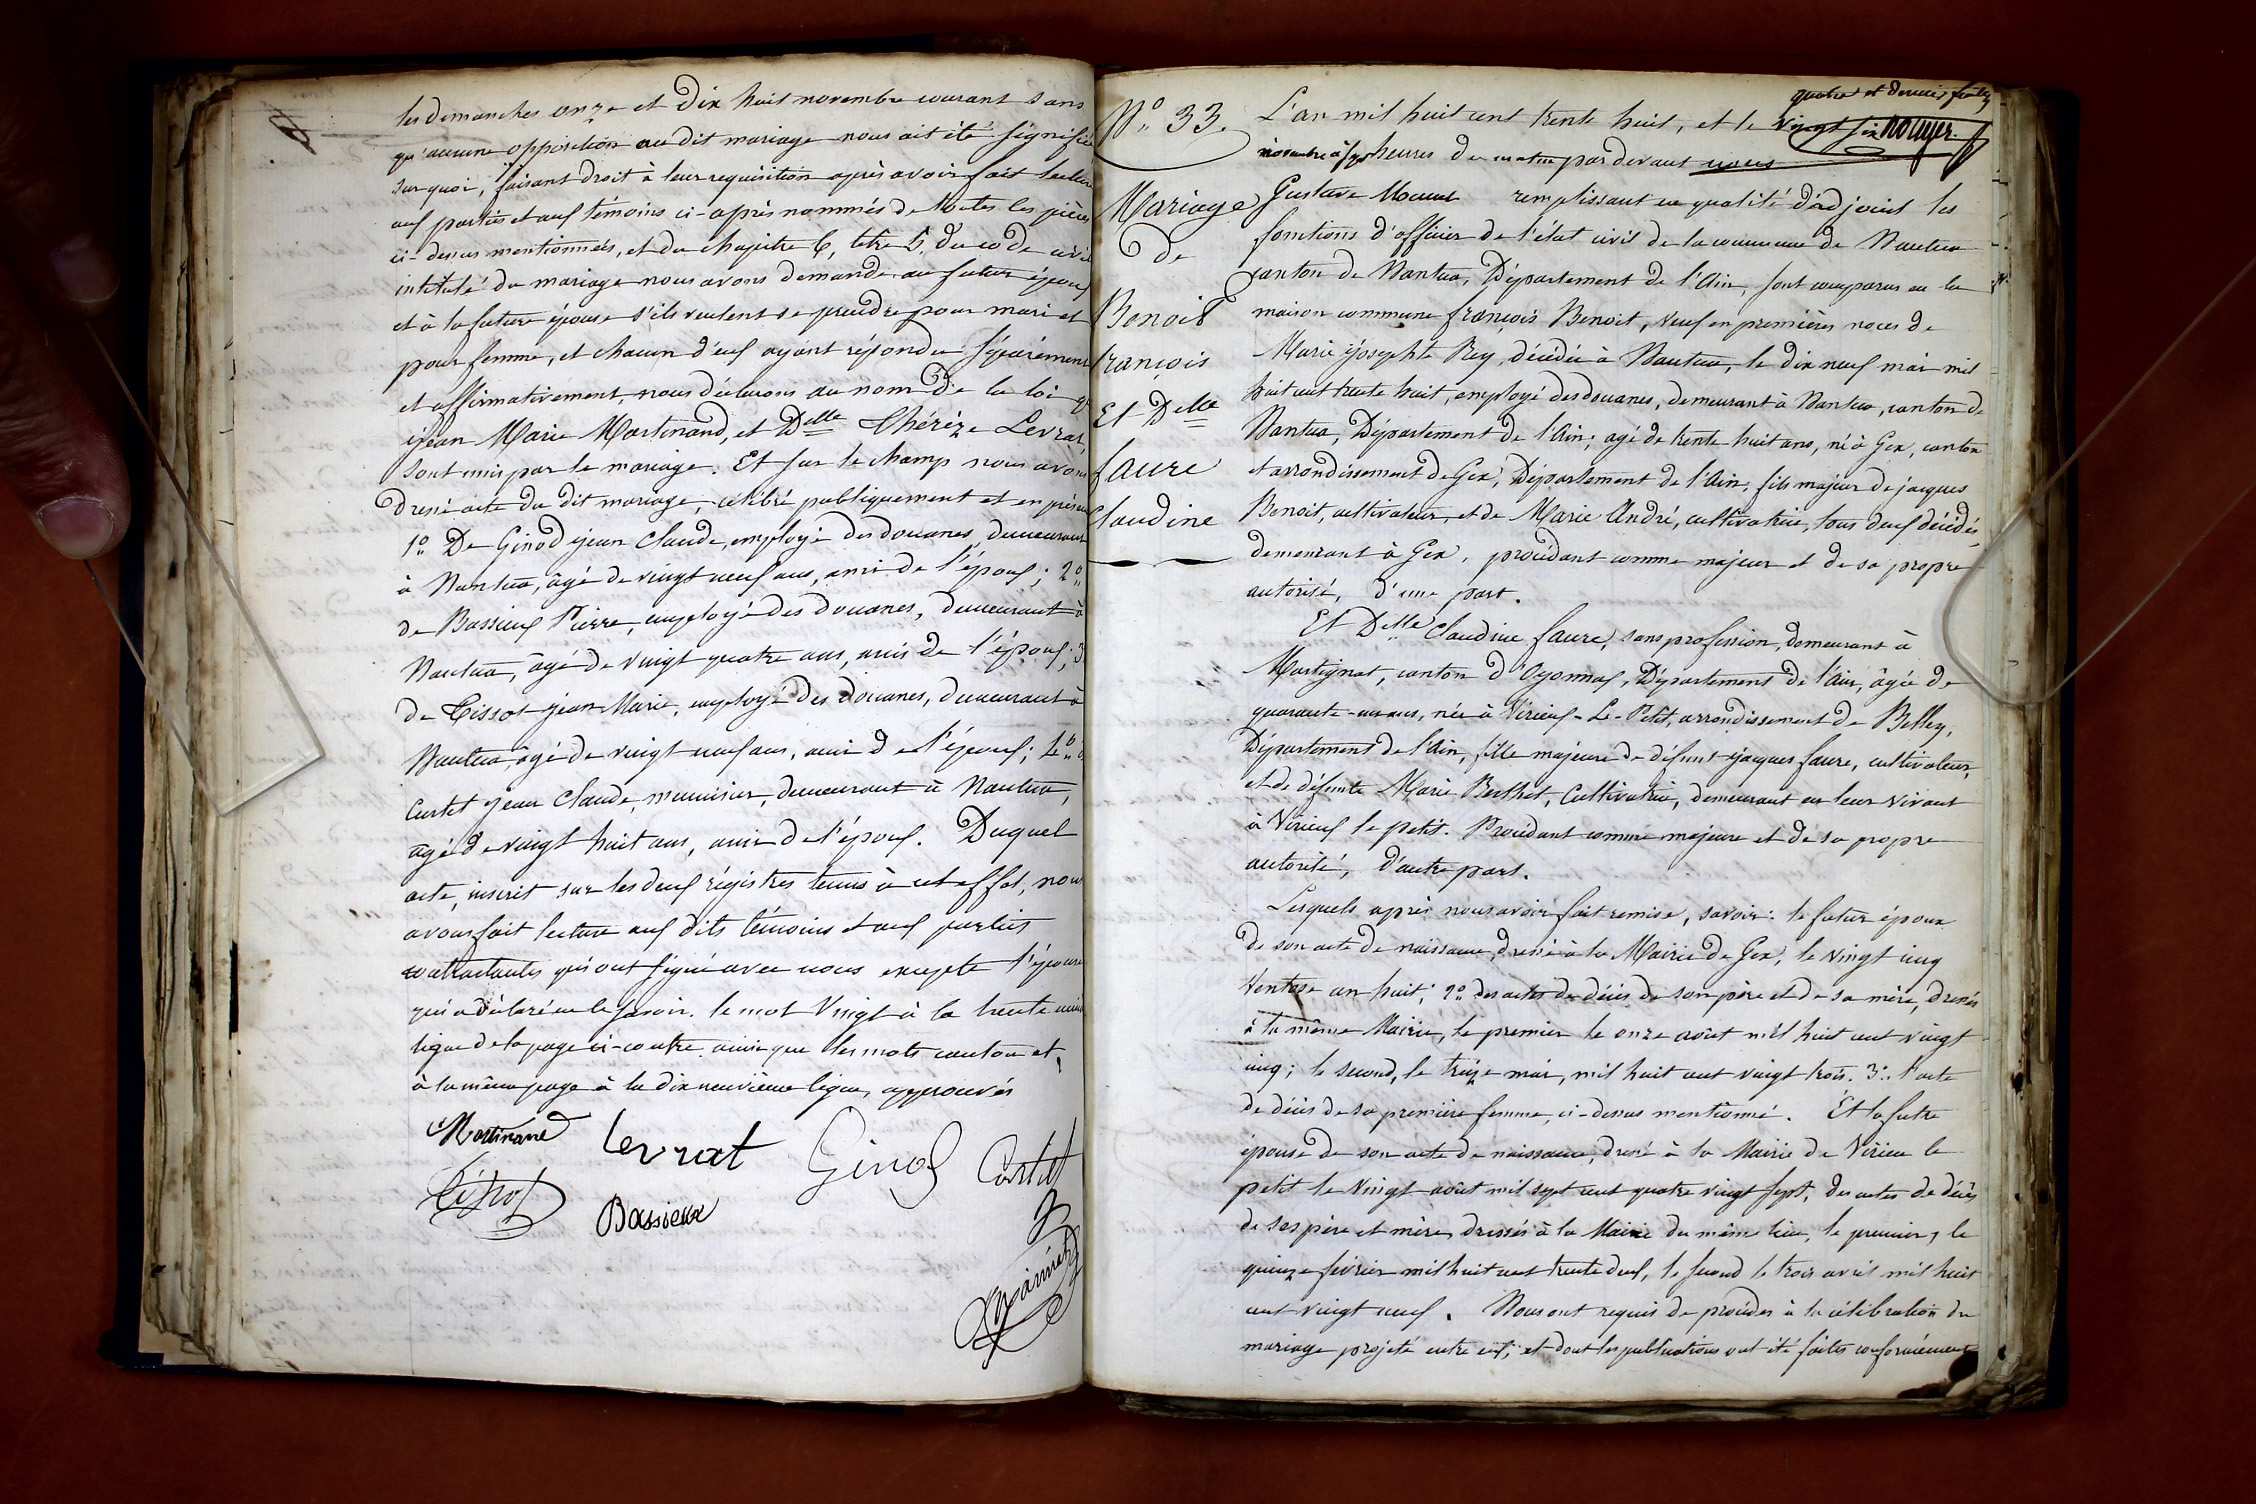 les dimanches onze et dix huit novembre courant sans
qu'aucune opposition au dit mariage nous ait été signifiée
sur quoi, faisant droit à leur requisition après avoir fait lecture
aux parties et aux témoins ci-après nommés de toutes les pièces
ci-dessus mentionnées, et du chapitre 6, titre 5, du code civil
intitulé du mariage nous avons demandé au futur époux
et à la future épouse s'ils veulent se prendre pour mari et
pour femme, et chacun d'eux ayant répondu séparément
et affirmativement, nous déclarons au nom de la loi q
jean Marie Martinand, et Delle Thérèze Levrat,
sont unis par le mariage. Et sur le champ nous avons
dressé acte du dit mariage, célébré publiquement et en présen
1º De Ginod jean Claude, employé des douanes, demeurant
à Nantua, âgé de vingt neuf ans, ami de l'époux; 2º
de Bassieux Pierre, employé des douanes, demeurant à
Nantua, âgé de vingt quatre ans, ami de l'époux; 3
de Tissot jean Marie, employé des douanes, demeurant à
Nantua, âgé de vingt neuf ans, ami de l'époux; 4º
Curtet jean Claude, menuisier, demeurant à Nantua,
âgé de vingt huit ans, ami de l'époux. Duquel
acte, inscrit sur les deux régistres tenus à cet effet, nous
avons fait lecture aux dits témoins et aux parties
contractantes qui ont signé avec nous excepté l'épouse
qui a déclaré ne le savoir. le mot Vingt à la trente
ligne de la page ci-contre ainsi que les mots canton et
à la même page à la dix neuvième ligne, approuvés
Martinand Levrat Ginod Curtet
Tissot Bassieux
quatre et dernier feuillet
Nº 33.
L'an mil huit cent trente huit, et le vingt six
novembre à sept heures du matin par devant nous
Mariage
de
Benoit
françois
Et Delle
faure
Claudine
Gustave remplissant en qualité d'adjoint les
fonctions d'officier de l'état civil de la commune de Nantua
canton de Nantua, Département de l'Ain, sont comparus en la
maison commune françois Benoit, veuf en premières noces de
Marie josephte Rey, décédée à Nantua, le dix neuf mai mil
huit cent trente huit, employé des douanes, demeurant à Nantua, canton de
Nantua, Département de l'Ain; agé de trente huit ans, né à Gex, canton
et arrondissement de Gex, Département de l'Ain; fils majeur de jacques
Benoit, cultivateur, et de Marie André, cultivatrice, tous deux décédés,
demeurant à Gex, procédant comme majeur et de sa propre
autorité, d'une part.
Et Delle Claudine faure, sans profession, demeurant à
Martignat, canton d'Oyonnax, Département de l'Ain, âgée de
quarante-un ans, née à Virieux-Le-Petit, arrondissement de Belley,
Département de l'Ain, fille majeure de défunt jacques faure, cultivateur,
et de défunte Marie Berthet, Cultivatrice, demeurant en leur vivant
à Virieux le petit. Procédant comme majeure et de sa propre
autorité, d'autre part.
Lesquels après nous avoir fait remise, savoir: le futur époux
de son acte de naissance, dressé à la Mairie de Gex, le vingt cinq
Ventose an huit; 2º des actes de décès de son père et de sa mère, dressés
à la même Mairie, le premier le onze août mil huit cent vingt
cinq; le second, le treize mai, mil huit cent vingt trois. 3º. l'acte
de décès de sa première femme, ci-dessus mentionné. Et la future
épouse de son acte de naissance, dressé à la Mairie de Virieu le
petit le vingt août mil sept cent quatre vingt sept, des actes de décès
de ses père et mère, dressés à la Mairie du même lieu, le premier, le
quinze février mil huit cent trente deux, le second le trois avril mil huit
cent vingt neuf. Nous ont requis de procéder à la célébration du
mariage projeté entre eux, et dont les publications ont été faites conformément